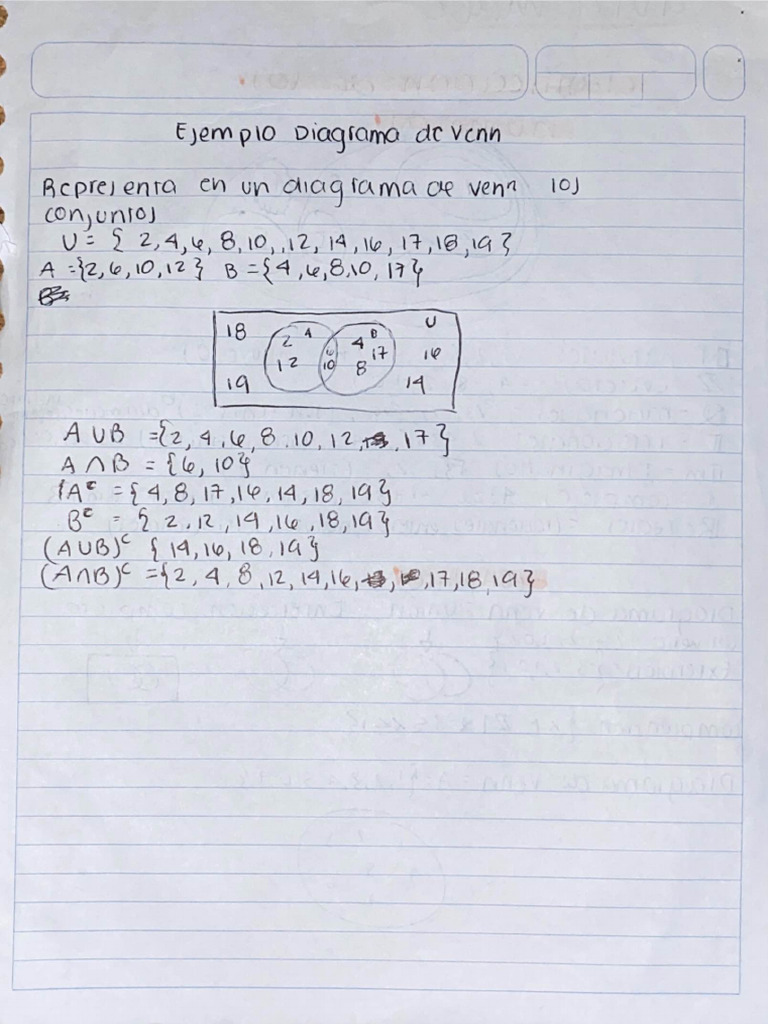 Ejemplo Diagrama de Venn
Representa en un diagrama de venn los
conjuntos
U = { 2, 4, 6, 8, 10, 12, 14, 16, 17, 18, 19 }
A = {2, 6, 10, 12} B = {4, 6, 8, 10, 17}
18 2 A 4 B U
12 6 10 8 17 16
19 14
A ∪ B = {2, 4, 6, 8, 10, 12, 17}
A ∩ B = {6, 10}
Aᶜ = {4, 8, 17, 16, 14, 18, 19}
Bᶜ = { 2, 12, 14, 16, 18, 19}
(A∪B)ᶜ {14, 16, 18, 19}
(A∩B)ᶜ = {2, 4, 8, 12, 14, 16, 17, 18, 19}